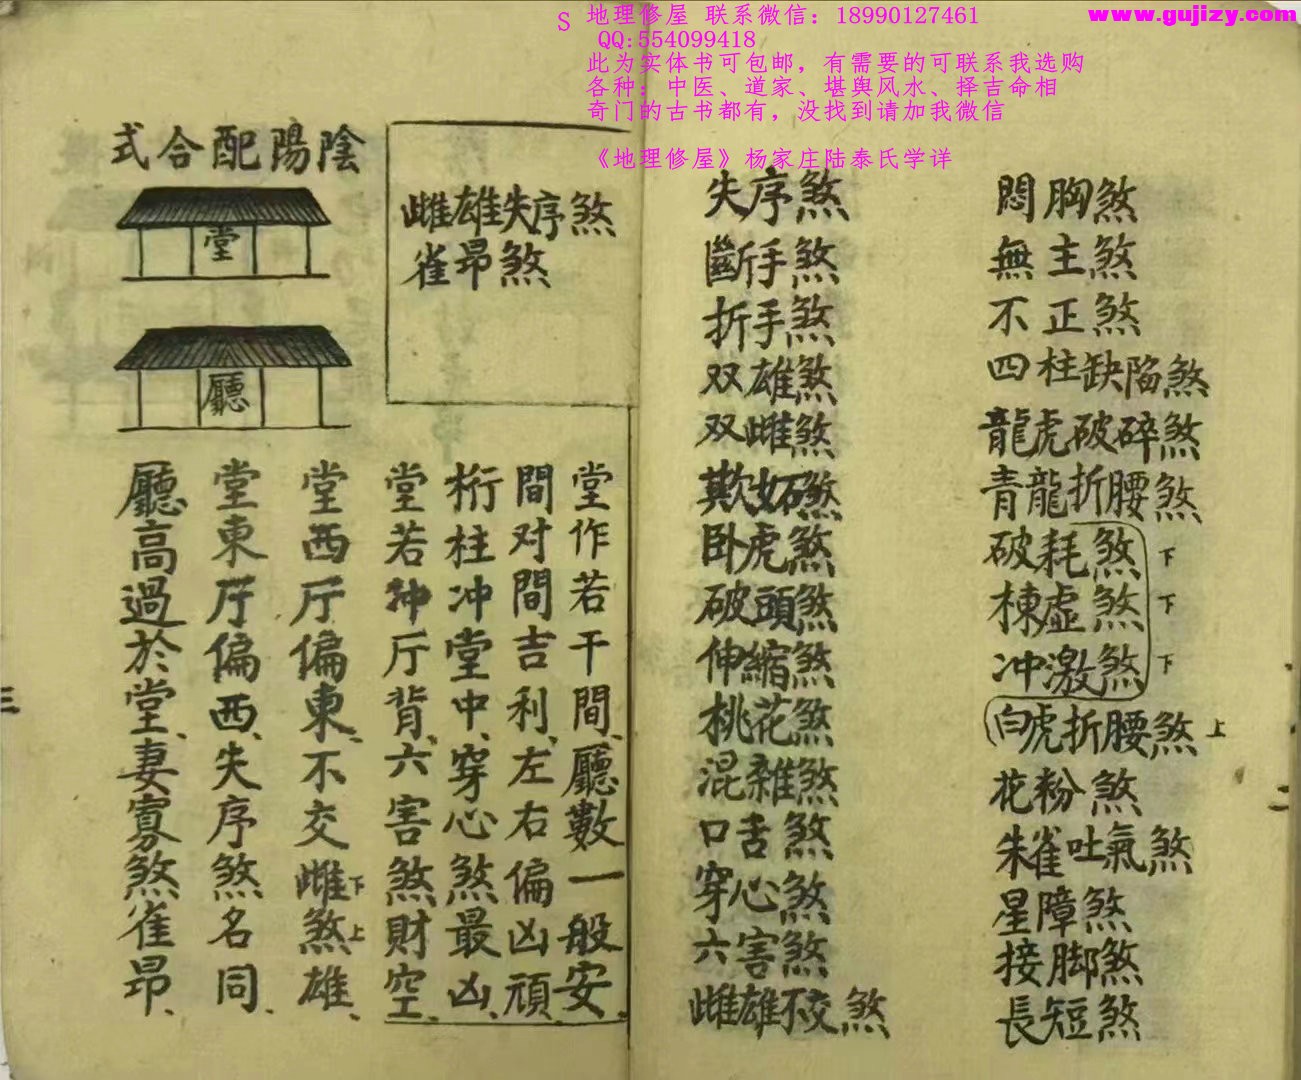 S 地理修屋 联系微信：18990127461
QQ:554099418
此为实体书可包邮，有需要的可联系我选购
各种：中医、道家、堪舆风水、择吉命相
奇门的古书都有，没找到请加我微信
《地理修屋》杨家庄陆泰氏学详
www.gujizy.com
悶胸煞
無主煞
不正煞
四柱缺陷煞
龍虎破碎煞
青龍折腰煞
破耗煞 下
棟虛煞 下
冲激煞 下
白虎折腰煞 上
花粉煞
朱雀吐氣煞
星障煞
接脚煞
長短煞
失序煞
斷手煞
折手煞
双雄煞
双雌煞
欺妬煞
卧虎煞
破頭煞
伸縮煞
桃花煞
混雜煞
口舌煞
穿心煞
六害煞
雌雄不交煞
二
雌雄失序煞
雀昂煞
堂作若干間、廳數一般安、
間对間吉利、左右偏凶頑、
桁柱冲堂中、穿心煞最凶、
堂若冲厅背、六害煞財空、
陰陽配合式
堂
廳
堂西厅偏東、不交雌下煞上雄、
堂東厅偏西、失序煞名同、
廳高過於堂、妻寡煞雀昂、
三